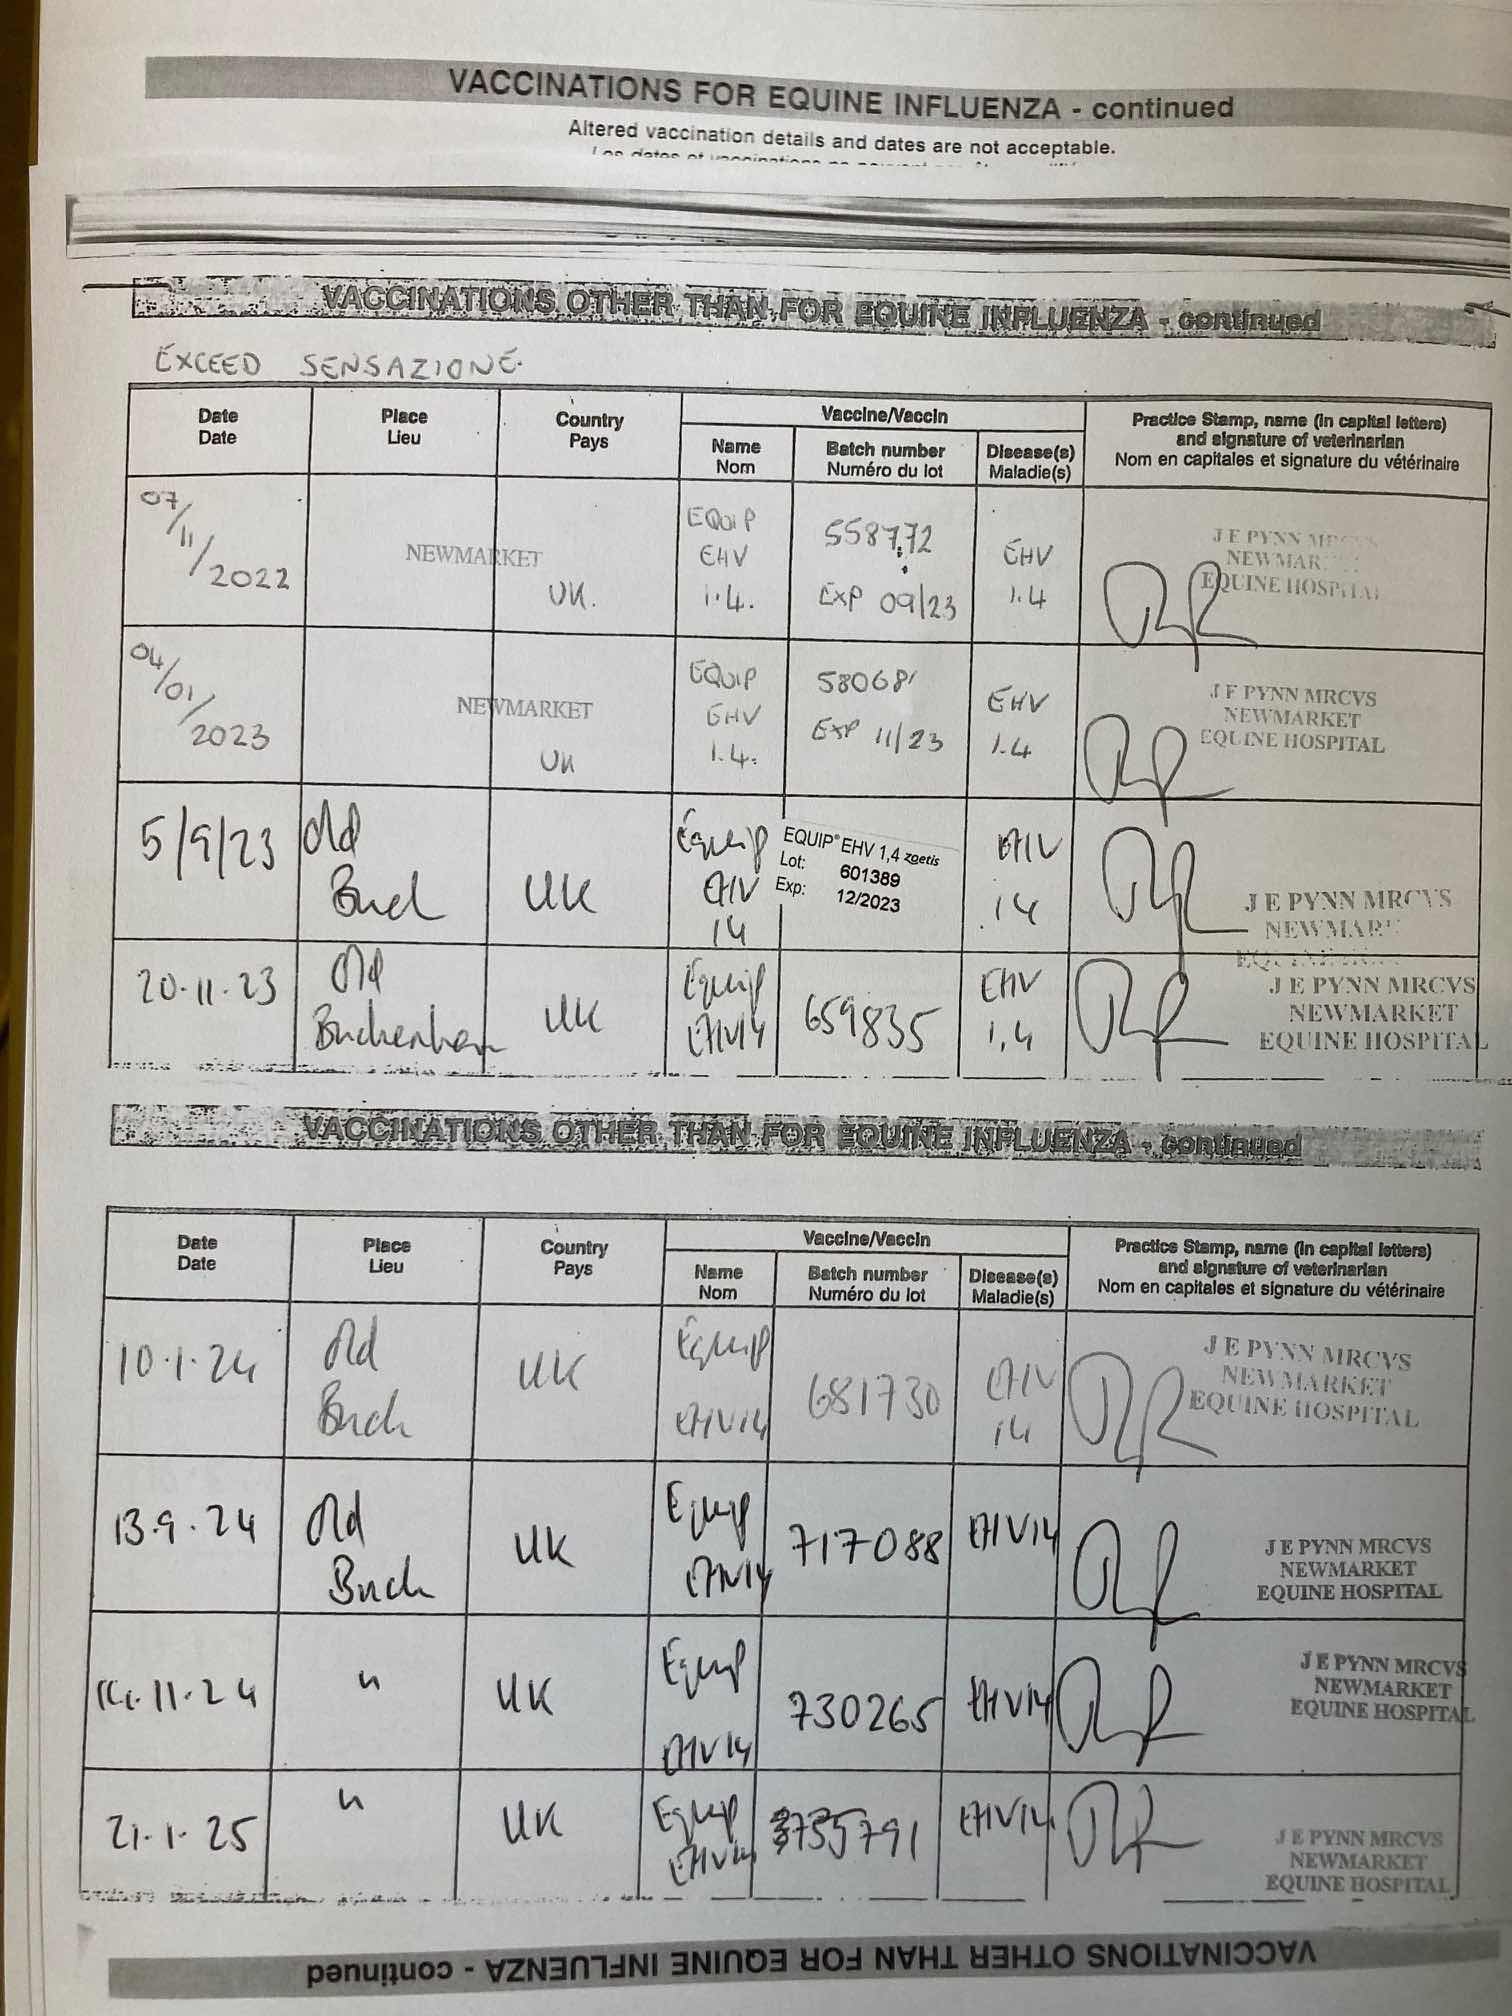 VACCINATIONS FOR EQUINE INFLUENZA - continued
Altered vaccination details and dates are not acceptable.
VACCINATIONS OTHER THAN FOR EQUINE INFLUENZA - continued
EXCEED SENSAZIONE.
Date Place Country Vaccine/Vaccin Practice Stamp, name (in capital letters)
Date Lieu Pays and signature of veterinarian
Name Batch number Disease(s) Nom en capitales et signature du vétérinaire
Nom Numéro du lot Maladie(s)
07/11/2022 NEWMARKET UK. EQUIP EHV 1.4. 558772 EXP 09/23 EHV 1.4 J E PYNN
NEWMAR
EQUINE HOSPITAL
04/01/2023 NEWMARKET UK EQUIP EHV 1.4. EXP 11/23 EHV 1.4 J E PYNN MRCVS
NEWMARKET
EQUINE HOSPITAL
5/9/23 Old Buck UK Equip EHV 14 EQUIP® EHV 1,4 zoetis
Lot: 601389
Exp: 12/2023
EHV 14 J E PYNN MRCVS
NEWMAR
20.11.23 Old Buckenham UK Equip EHV14 659835 EHV 1,4 J E PYNN MRCVS
NEWMARKET
EQUINE HOSPITAL
VACCINATIONS OTHER THAN FOR EQUINE INFLUENZA - continued
Date Place Country Vaccine/Vaccin Practice Stamp, name (in capital letters)
Date Lieu Pays and signature of veterinarian
Name Batch number Disease(s) Nom en capitales et signature du vétérinaire
Nom Numéro du lot Maladie(s)
10.1.24 Old Buck UK Equip EHV14 681730 EHV 14 J E PYNN MRCVS
NEWMARKET
EQUINE HOSPITAL
13.9.24 Old Buck UK Equip EHV14 717088 EHV14 J E PYNN MRCVS
NEWMARKET
EQUINE HOSPITAL
11.24 " UK Equip EHV14 730265 EHV14 J E PYNN MRCVS
NEWMARKET
EQUINE HOSPITAL
21.1.25 " UK Equip EHV14 735791 EHV14 J E PYNN MRCVS
NEWMARKET
EQUINE HOSPITAL
VACCINATIONS OTHER THAN FOR EQUINE INFLUENZA - continued